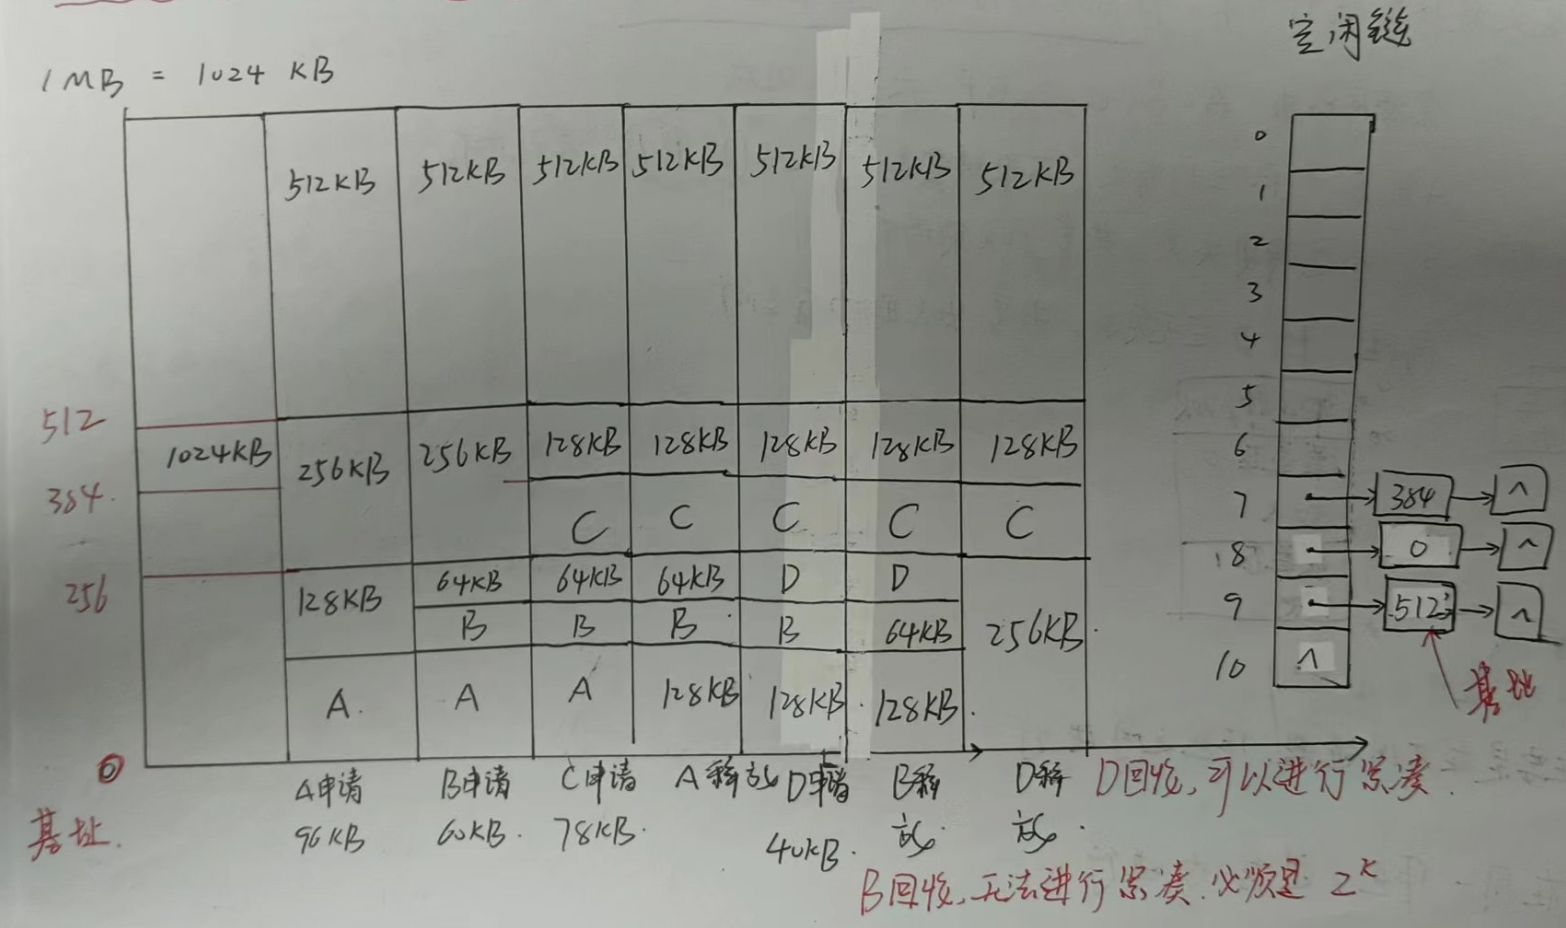 空闲链
1MB = 1024 KB
512KB 512KB 512KB 512KB 512KB 512KB 512KB
0
1
2
3
4
5
6
7 384 ^
8 0 ^
9 512 ^
10 ^
基址
512
1024KB 256KB 256KB 128KB 128KB 128KB 128KB 128KB
384
C C C C C
256
128KB 64KB 64KB 64KB D D
B B B B 64KB 256KB
A A A 128KB 128KB 128KB
0
基址
A申请 B申请 C申请 A释放 D申请 B释放 D释放
96KB 60KB 78KB 40KB
D回收,可以进行紧凑.
B回收,无法进行紧凑.必须是 2^K